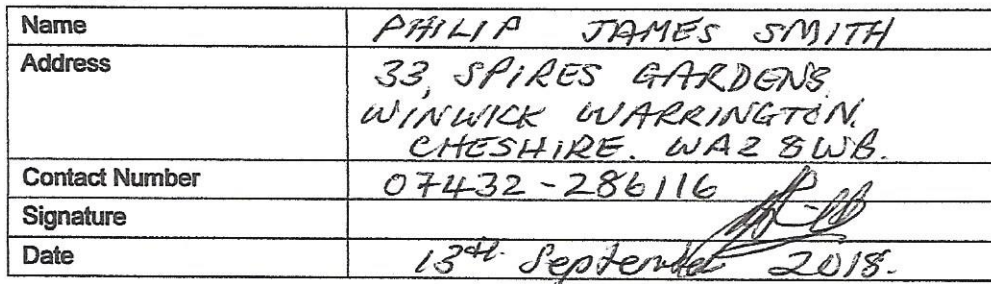 Name PHILIP JAMES SMITH
Address 33, SPIRES GARDENS
WINWICK WARRINGTON.
CHESHIRE. WA2 8WB.
Contact Number 07432-286116
Signature
Date 13th September 2018.